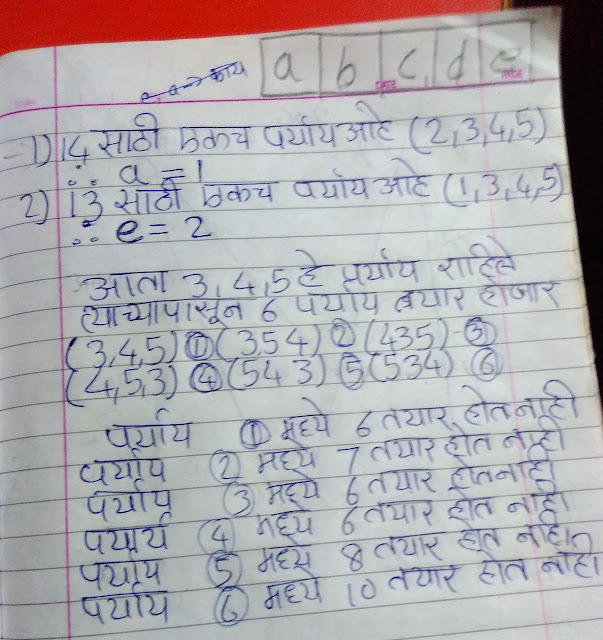 a b c d e
e, a → काय
1) 14 साठी एकच पर्याय आहे (2,3,4,5)
∴ a = 1
2) 13 साठी एकच पर्याय आहे (1,3,4,5)
∴ e = 2
आता 3, 4, 5 हे पर्याय राहिले
त्याच्यापासून 6 पर्याय तयार होणार
(3,4,5) ① (3,5 4) ② (435) ③
(4,5,3) ④ (5 4 3) ⑤ (534) ⑥
पर्याय ① मध्ये 6 तयार होत नाही
पर्याय ② मध्ये 7 तयार होत नाही
पर्याय ③ मध्ये 6 तयार होत नाही
पर्याय ④ मध्ये 6 तयार होत नाही
पर्याय ⑤ मध्ये 8 तयार होत नाही
पर्याय ⑥ मध्ये 10 तयार होत नाही